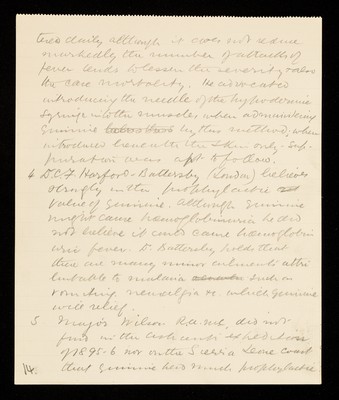 tered daily although it does not reduce
markedly the number of attacks of
fever tends to lessen the severity & also
the case mortality. He advocated
introducing the needle of the hypodermic
syringe into the muscles when administering
quinine by this method, when
introduced beneath the skin only sup-
puration was apt to follow.
4 D. C. F. Harford-Battersby (London) believes
strongly in the prophylactic
value of quinine. Although quinine
might cause haemoglobinuria he did
not believe it could cause haemoglobin
uric fever. Dr Battersby holds that
there are many minor ailments attri
butable to malaria such as
vomiting neuralgia &c. which quinine
will relief.
5 Major Wilson R.A.M.C. did not
find in the Ashanti Expedition
of 1895-6 nor on the Sierra Leone Coast
that quinine had much prophylactic
14.